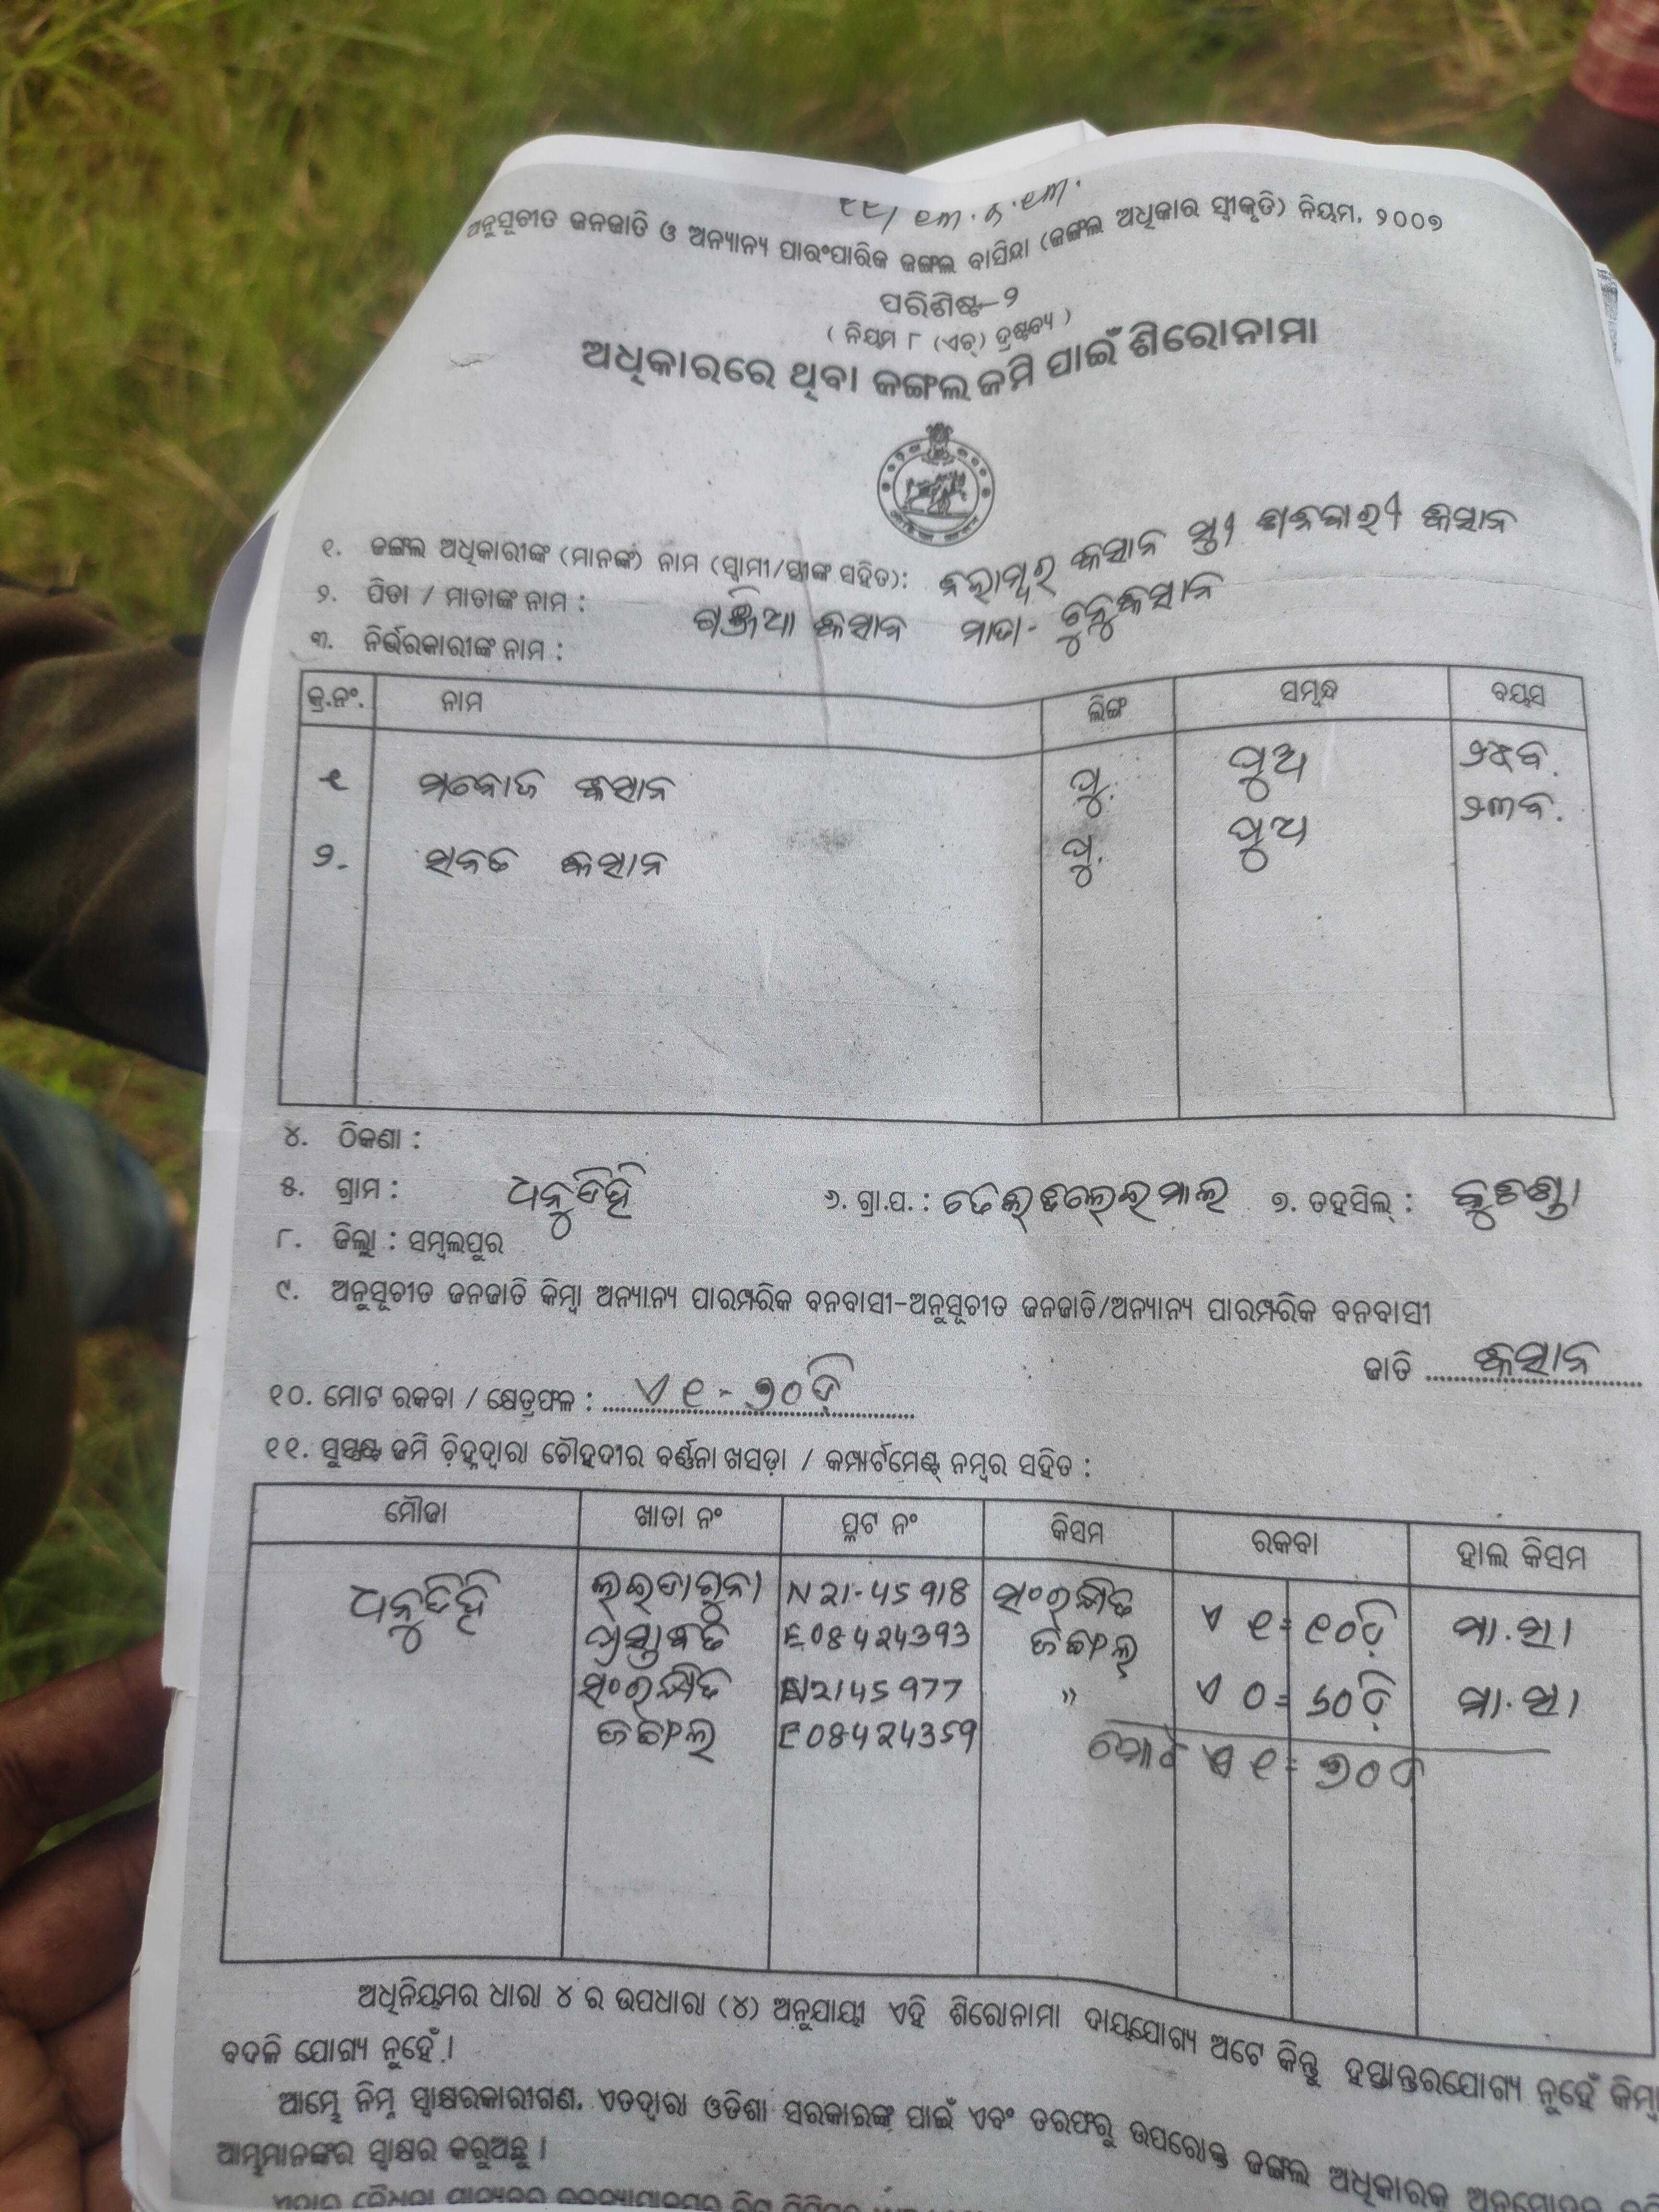 ଅନୁସୂଚୀତ ଜନଜାତି ଓ ଅନ୍ୟାନ୍ୟ ପାରଂପାରିକ ଜଙ୍ଗଲ ବାସିନ୍ଦା (ଜଙ୍ଗଲ ଅଧିକାର ସ୍ୱୀକୃତି) ନିୟମ, ୨୦୦୭
ପରିଶିଷ୍ଟ-୨
( ନିୟମ ୮ (ଏଚ୍) ଦ୍ରଷ୍ଟବ୍ୟ )
ଅଧିକାରରେ ଥିବା ଜଙ୍ଗଲ ଜମି ପାଇଁ ଶିରୋନାମା
୧. ଜଙ୍ଗଲ ଅଧିକାରୀଙ୍କ (ମାନଙ୍କ) ନାମ (ସ୍ୱାମୀ/ସ୍ତ୍ରୀଙ୍କ ସହିତ): କିସାନ ସ୍ତ୍ରୀ କିସାନ
୨. ପିତା / ମାତାଙ୍କ ନାମ : କିସାନ ମାତା-
୩. ନିର୍ଭରକାରୀଙ୍କ ନାମ :
କ୍ର.ନଂ. ନାମ ଲିଙ୍ଗ ସମ୍ବନ୍ଧ ବୟସ
୧ ମନୋଜ କିସାନ ପୁ. ପୁଅ ୨୫ବ.
୨. ସନତ କିସାନ ପୁ. ପୁଅ ୨୩ବ.
୪. ଠିକଣା :
୫. ଗ୍ରାମ : ଧନୁଡିହି ୬. ଗ୍ରା.ପ. : ୭. ତହସିଲ୍ : କୁଚିଣ୍ଡା
୮. ଜିଲ୍ଲା : ସମ୍ବଲପୁର
୯. ଅନୁସୂଚୀତ ଜନଜାତି କିମ୍ବା ଅନ୍ୟାନ୍ୟ ପାରମ୍ପରିକ ବନବାସୀ-ଅନୁସୂଚୀତ ଜନଜାତି/ଅନ୍ୟାନ୍ୟ ପାରମ୍ପରିକ ବନବାସୀ
ଜାତି କିସାନ
୧୦. ମୋଟ ରକବା / କ୍ଷେତ୍ରଫଳ : ଏ ୧-୭୦ଡି
୧୧. ସୁସ୍ପଷ୍ଟ ଜମି ଚିହ୍ନଦ୍ୱାରା ଚୌହଦୀର ବର୍ଣ୍ଣନା ଖସଡ଼ା / କମ୍ପାର୍ଟମେଣ୍ଟ୍ ନମ୍ବର ସହିତ :
ମୌଜା ଖାତା ନଂ ପ୍ଳଟ ନଂ କିସମ ରକବା ହାଲ କିସମ
ଧନୁଡିହି N 21-45 918 ସଂରକ୍ଷିତ ଏ ୧ = ୧୦ଡି
ପ୍ରସ୍ତାବିତ E 084 24393 ଜଙ୍ଗଲ
ସଂରକ୍ଷିତ N 2145 977 " ଏ ୦ = ୬୦ଡି
ଜଙ୍ଗଲ E 084 24359 ମୋଟ ଏ ୧ = ୭୦ଡି
ଅଧିନିୟମର ଧାରା ୪ ର ଉପଧାରା (୪) ଅନୁଯାୟୀ ଏହି ଶିରୋନାମା ଦାୟଯୋଗ୍ୟ ଅଟେ କିନ୍ତୁ ହସ୍ତାନ୍ତରଯୋଗ୍ୟ ନୁହେଁ କିମ୍ବା
ବଦଳି ଯୋଗ୍ୟ ନୁହେଁ ।
ଆମ୍ଭେ ନିମ୍ନ ସ୍ୱାକ୍ଷରକାରୀଗଣ, ଏତଦ୍ୱାରା ଓଡିଶା ସରକାରଙ୍କ ପାଇଁ ଏବଂ ତରଫରୁ ଉପରୋକ୍ତ ଜଙ୍ଗଲ ଅଧିକାରକୁ ଅନୁମୋଦନ
ଆମ୍ଭମାନଙ୍କର ସ୍ୱାକ୍ଷର କରୁଅଛୁ ।